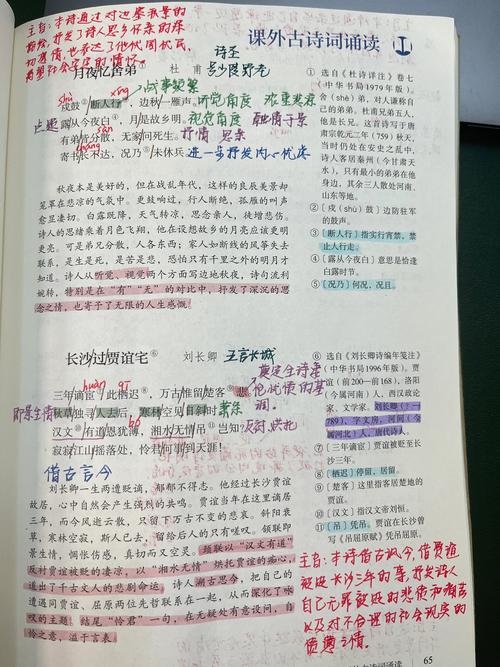 主旨：本诗通过对边塞秋景的
描绘，抒发了诗人思乡怀亲的深
切君情，也表达了他忧国忧民，
希望社会安定的情怀。
课外古诗词诵读
月夜忆舍弟
杜 甫
诗圣
忧沙限野光
shù
xíng
战事频繁
戍鼓②断人行③，边秋一雁声。
听觉角度
点题
露从今夜白④，月是故乡明。
视觉角度 融情于景
sàn
有弟皆分散，无家问死生。
抒情 思亲
cháng
寄书长不达，况乃⑤未休兵。
进一步抒发内心忧虑
秋夜本是美好的，但在战乱年代，这样的良辰美景却
笼罩在悲凉的气氛中。更鼓响过，行人断绝，孤雁的叫声
愈显凄切。白露既降，天气转凉，思念亲人，徒增悲伤。
诗人的思绪乘着月色飞翔，他在设想故乡的月亮应该更明
更亮。可是弟兄分散，人各东西；家人如断线的风筝失去
联系，是生是死，是苦是悲，恐怕只有千里之外的明月才
知道。诗人从听觉、视觉两个方面写边地秋夜，诗句流利
婉转，特别是在“有”“无”的对比中，抒发了深沉的思
念之情，也寄予了无限的人生感慨。
① 选自《杜诗详注》卷七
（中华书局1979年版）。
舍（shè）弟，对人谦称自
己的弟弟。杜甫兄弟五人，
他是长兄。这首诗写于唐
肃宗乾元二年（759）秋天，
当时仍处在安史之乱中，
诗人客居秦州（今甘肃天
水），只有最小的弟弟在他
身边，其余三人散处河南、
山东等地。
②〔戍（shù）鼓〕边防驻军
的鼓声。
③〔断人行〕指实行宵禁，禁
止人行走。
④〔露从今夜白〕意思是恰逢
白露时节。
⑤〔况乃〕何况，况且。
长沙过贾谊宅⑥
刘长卿
五言长城
huàn
qī
三年谪宦⑦此栖迟⑧，万古惟留楚客⑨悲。
奠定全诗
即景生情
秋草独寻人去后，寒林空见日斜时。
萧条
汉文⑩有道恩犹薄，湘水无情吊⑪岂知？
bó
反衬、烘托
寂寂江山摇落处，怜君何事到天涯！
借古言今
刘长卿一生两遭贬谪，郁郁不得志。他经过长沙贾谊
故居，心中自然会产生强烈的共鸣。贾谊当年在这里谪居
三年，而今风逝云散，只留下万古不变的悲哀。斜阳衰
草，寒林空寂，斯人已去，留给后人的只有嗟叹。颔联即
景生情，惆怅伤感，真切而又空灵。颈联以“汉文有道”
反衬贾谊被贬的凄凉，以“湘水无情”烘托贾谊的痴心，
道出了千古文人的悲剧命运。诗人溯古思今，把自己的
遭遇同贾谊、屈原两位先哲联系在一起，从而深化了咏
叹的主题。结尾“怜君”一句，在无疑处有意设问，自
怜之意，溢于言表。
⑥ 选自《刘长卿诗编年笺注》
（中华书局1996年版）。
贾谊（前200—前168），洛阳
（今属河南）人，西汉政论
家、文学家。刘长卿（？—约
789），字文房，河间（今
属河北）人，唐代诗人。
⑦〔三年谪宦〕贾谊被贬至长
沙三年。
⑧〔栖迟〕停留，居留。
⑨〔楚客〕这里指客居楚地的
贾谊。
⑩〔汉文〕指汉文帝刘恒。
⑪〔吊〕凭吊。贾谊在长沙曾
写《吊屈原赋》凭吊屈原。
主旨：本诗借古讽今，借贾谊
被贬长沙三年的事，抒发诗人
自己无罪被贬的悲愤和痛苦
以及对不合理的社会现实的
愤懑之情。
课外古诗词诵读
65